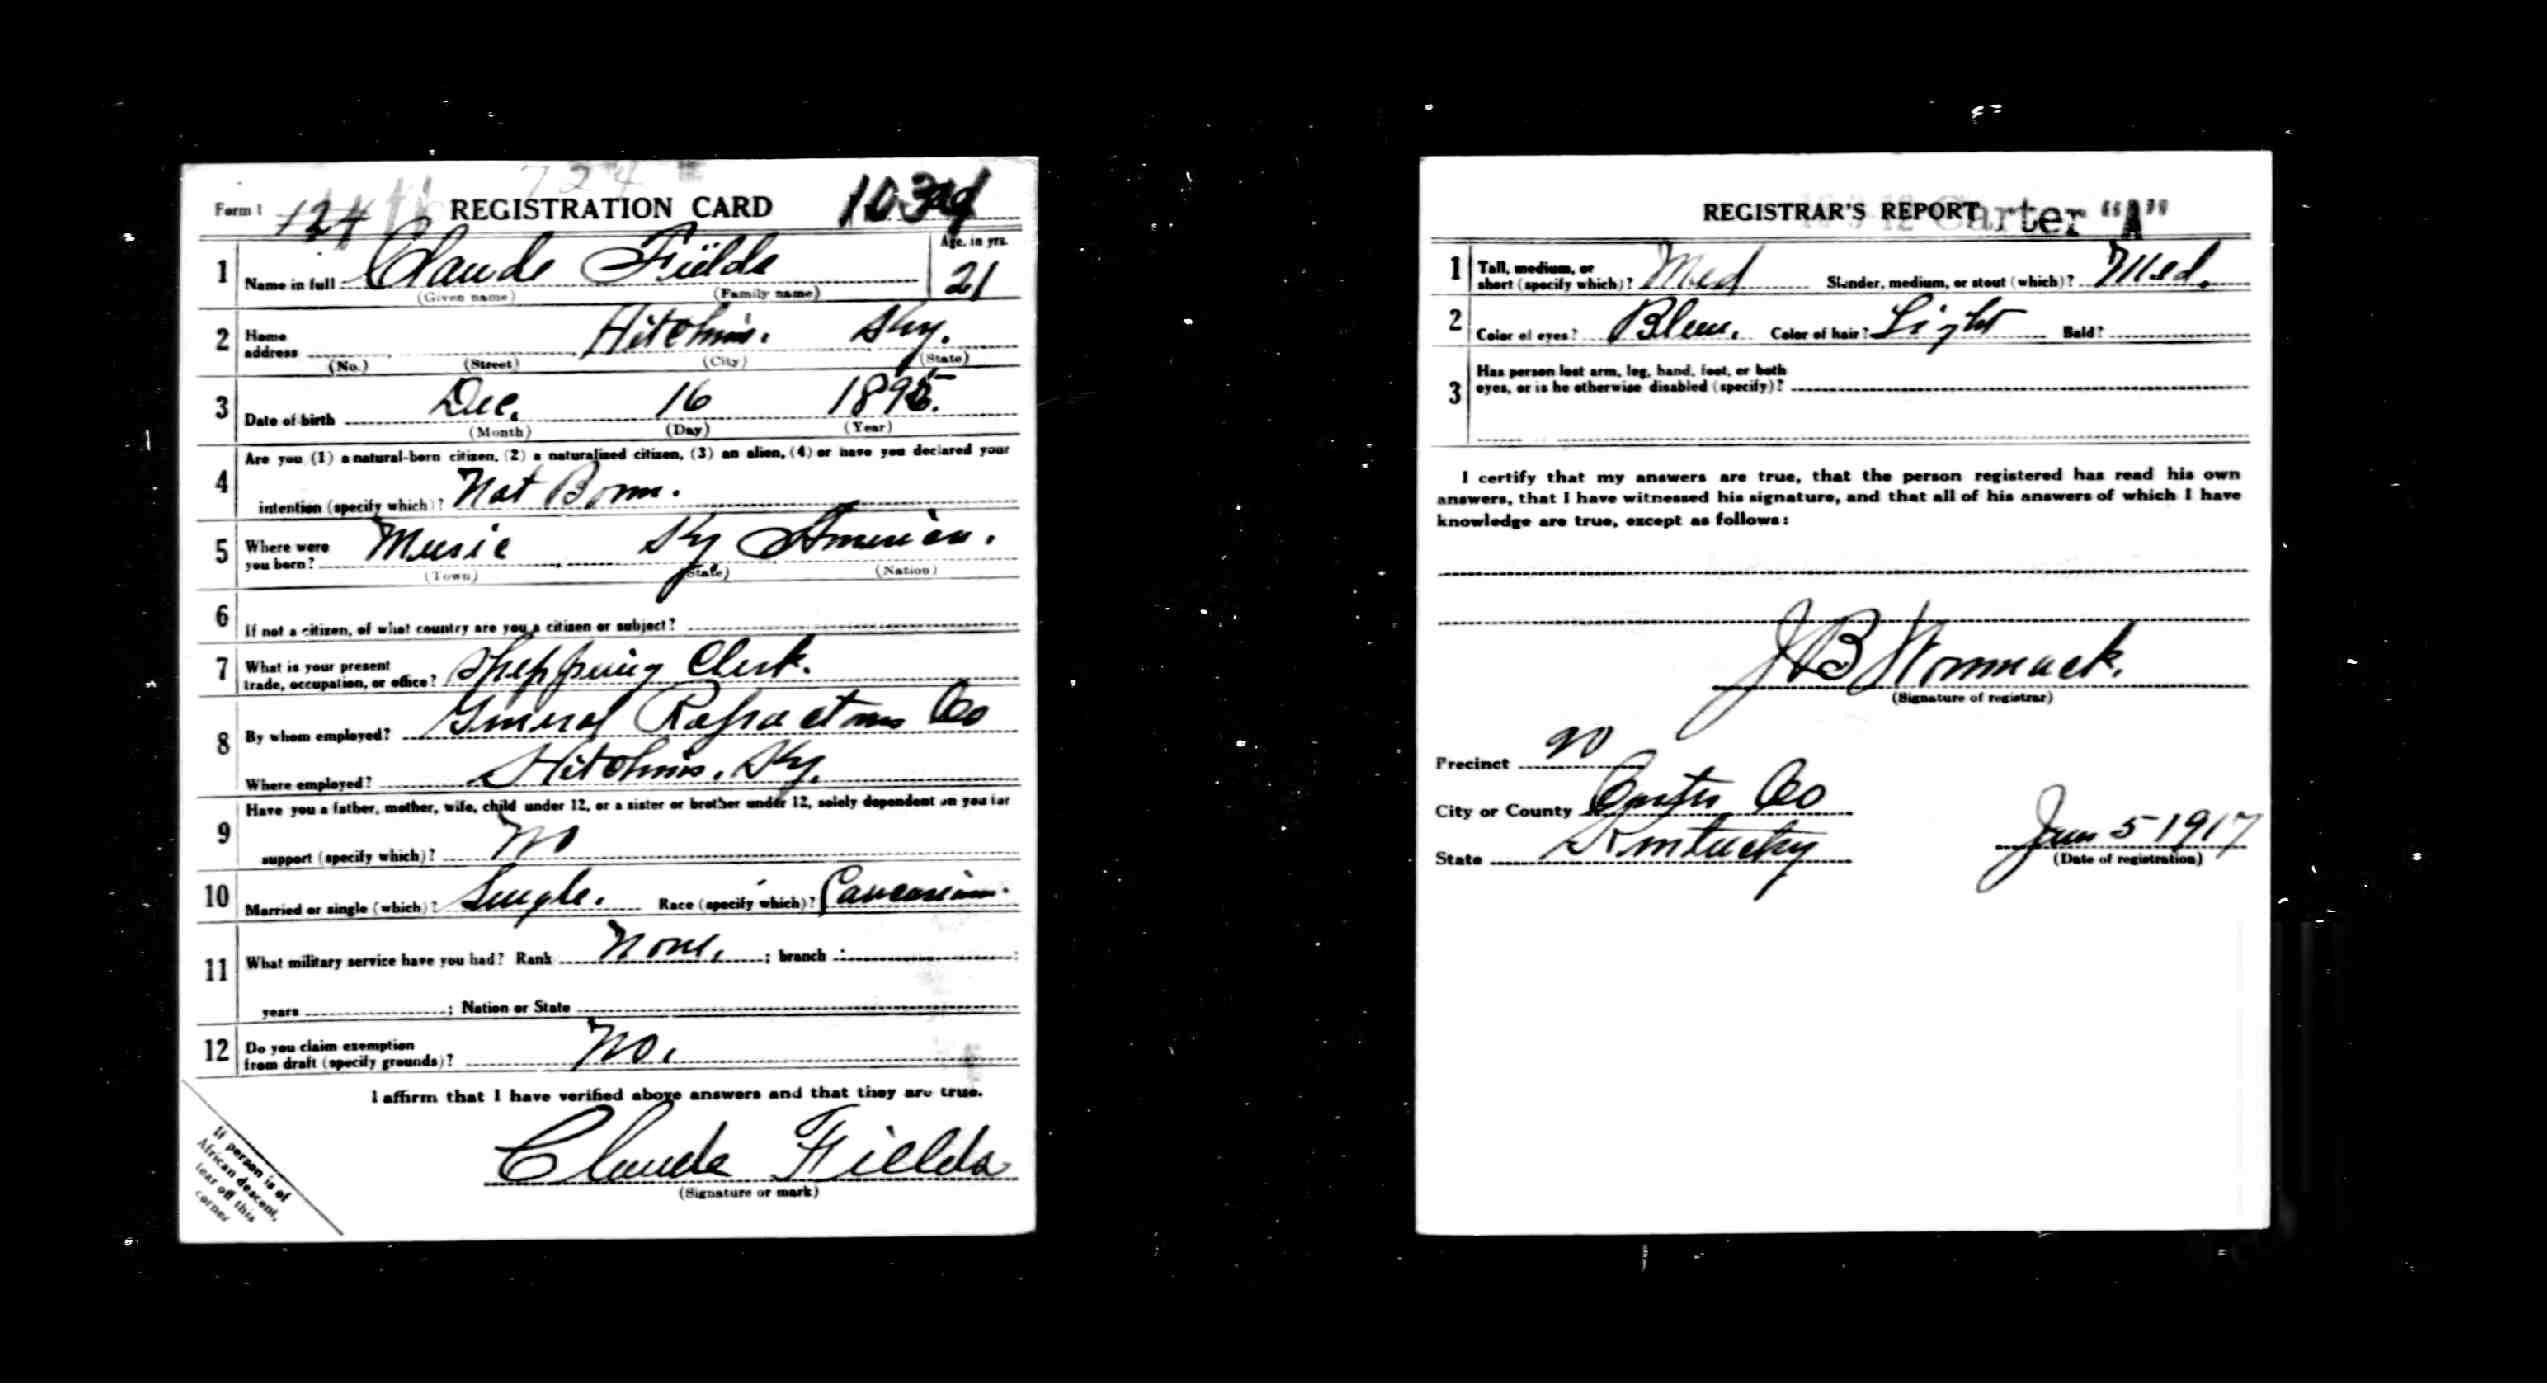 Form 1 124 REGISTRATION CARD
1 Name in full Claude Fields Age, in yrs.
(Given name) (Family name) 21
2 Home address Hitchins. Ky.
(No.) (Street) (City) (State)
3 Date of birth Dec. 16 1895.
(Month) (Day) (Year)
4 Are you (1) a natural-born citizen, (2) a naturalized citizen, (3) an alien, (4) or have you declared your
intention (specify which)? Nat Born.
5 Where were you born? Music Ky America.
(Town) (State) (Nation)
6 If not a citizen, of what country are you a citizen or subject?
7 What is your present
trade, occupation, or office? Shipping Clerk.
8 By whom employed? General Refractories Co
Where employed? Hitchins, Ky.
9 Have you a father, mother, wife, child under 12, or a sister or brother under 12, solely dependent on you for
support (specify which)? No
10 Married or single (which)? Single. Race (specify which)? Caucasian.
11 What military service have you had? Rank None, ; branch ;
years ; Nation or State
12 Do you claim exemption
from draft (specify grounds)? No.
I affirm that I have verified above answers and that they are true.
Claude Fields
(Signature or mark)
If person is of
African descent,
tear off this
corner
REGISTRAR'S REPORT Carter "A"
1 Tall, medium, or
short (specify which)? Med Slender, medium, or stout (which)? Med.
2 Color of eyes? Blue. Color of hair? Light Bald?
3 Has person lost arm, leg, hand, foot, or both
eyes, or is he otherwise disabled (specify)?
I certify that my answers are true, that the person registered has read his own
answers, that I have witnessed his signature, and that all of his answers of which I have
knowledge are true, except as follows:
J B Wommack.
(Signature of registrar)
Precinct
City or County Carter Co
State Kentucky Jun 5 1917
(Date of registration)